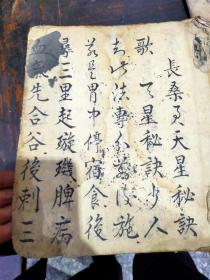 長桑君天星秘訣
歌 天星秘訣少人
知此法專分前後施
若是胃中停宿食後
尋三里起璇璣脾病
血氣先合谷後刺三